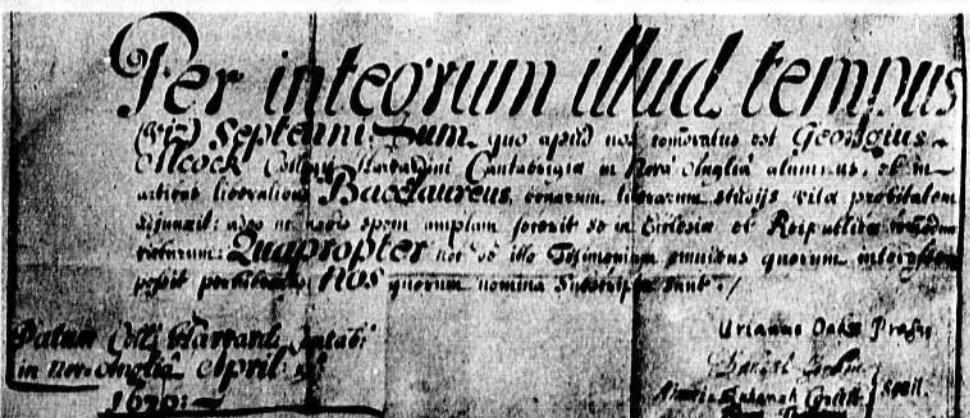 Per integrum illud tempus
(viz) Septenni- um quo apud nos comoratus est Georgius
Alcock Collegij Harvardini Cantabrigiæ in Nova Anglia alumnus, et in
artibus liberalibus Baccalaureus, bonarum literarum studijs vitæ probitatem
adjunxit: adeo ut nobis spem amplam fecerit se in Ecclesiæ et Reipublicæ
Quapropter illo Testimonium omnibus quorum
possit perhibemus NOS quorum nomina Subscripta sunt ·/
Datum Coll: Harvardi Cantab:
in Nov: Angliâ April
Urianus Oakes Præses
Daniel Gookin
Socii.